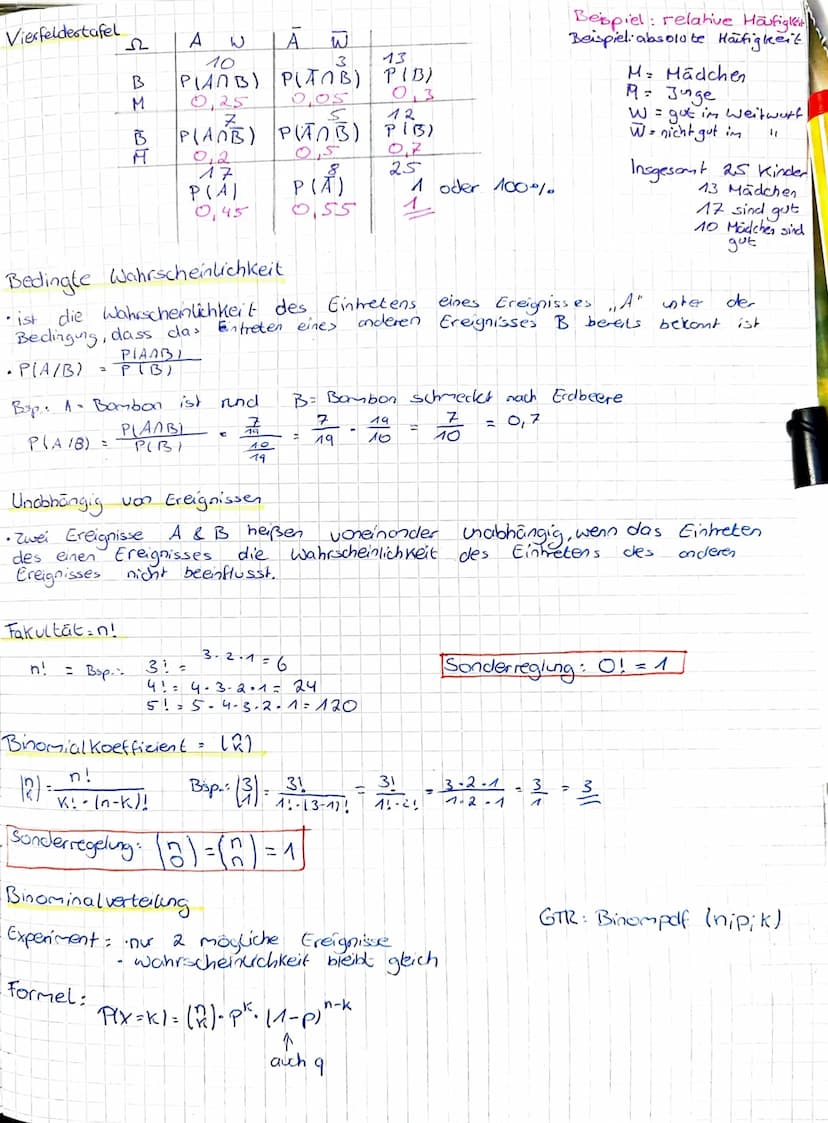 Vierfeldestafel
Beispiel: relative Häufigkeit
Beispiel: absolute Häufigkeit
Ω A W Ā W̄
10 3 13
B P(A∩B) P(Ā∩B) P(B)
M 0,25 0,05 0,3
7 5 12
B̄ P(A∩B̄) P(Ā∩B̄) P(B̄)
M̄ 0,2 0,5 0,7
17 8 25
P(A) P(Ā) 1 oder 100%
0,45 0,55 1
M = Mädchen
M̄ = Junge
W = gut im Weitwurf
W̄ = nicht gut im "
Insgesamt 25 Kinder
13 Mädchen
17 sind gut
10 Mädchen sind
gut
Bedingte Wahrscheinlichkeit
• ist die Wahrscheinlichkeit des Eintretens eines Ereignisses „A" unter der
Bedingung, dass das Eintreten eines anderen Ereignisses B bereits bekannt ist
• P(A/B) = P(A∩B) / P(B)
Bsp.: A = Bombon ist rund B = Bombon schmeckt nach Erdbeere
P(A/B) = P(A∩B) / P(B) = 7/19 / 10/19 = 7/19 · 19/10 = 7/10 = 0,7
Unabhängig von Ereignissen
• Zwei Ereignisse A & B heißen voneinander unabhängig, wenn das Eintreten
des einen Ereignisses die Wahrscheinlichkeit des Eintretens des anderen
Ereignisses nicht beeinflusst.
Fakultät = n!
n! = Bsp.: 3! = 3·2·1 = 6
4! = 4·3·2·1 = 24
5! = 5·4·3·2·1 = 120
Sonderreglung: 0! = 1
Binomialkoeffizient = (n k)
(n k) = n! / k!·(n-k)! Bsp.: (3 1) = 3! / 1!·(3-1)! = 3! / 1!·2! = 3·2·1 / 1·2·1 = 3/1 = 3
Sonderregelung: (n 0) = (n n) = 1
Binominalverteilung
Experiment: • nur 2 mögliche Ereignisse
- Wahrscheinlichkeit bleibt gleich
GTR: Binompdf (n;p;k)
Formel:
P(X=k) = (n k) · p^k · (1-p)^n-k
↑
auch q